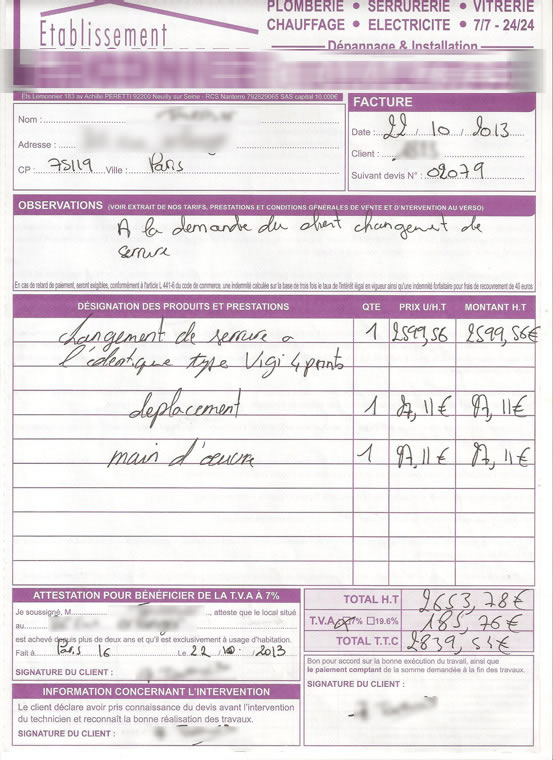 PLOMBERIE • SERRURERIE • VITRERIE
CHAUFFAGE • ELECTRICITE • 7/7 - 24/24
Etablissement
Dépannage & Installation
Ets Lemonnier 183 av Achille PERETTI 92200 Neuilly sur Seine - RCS Nanterre 792625065 SAS capital 10.000€
Nom :
Adresse :
CP : 75119 Ville : Paris
FACTURE
Date : 22 / 10 / 2013
Client :
Suivant devis N° : 02079
OBSERVATIONS (VOIR EXTRAIT DE NOS TARIFS, PRESTATIONS ET CONDITIONS GÉNÉRALES DE VENTE ET D'INTERVENTION AU VERSO)
A la demande du client changement de
serrure
En cas de retard de paiement, seront exigibles, conformément à l'article L 441-6 du code de commerce, une indemnité calculée sur la base de trois fois le taux de l'intérêt légal en vigueur ainsi qu'une indemnité forfaitaire pour frais de recouvrement de 40 euros
DÉSIGNATION DES PRODUITS ET PRESTATIONS QTE PRIX U/H.T MONTANT H.T
changement de serrure a 1 2599,56 2599,56€
l'identique type Vigi 4 points
deplacement 1 27,11€ 27,11€
main d'œuvre 1 27,11€ 27,11€
ATTESTATION POUR BÉNÉFICIER DE LA T.V.A À 7%
Je soussigné, M , atteste que le local situé
au
est achevé depuis plus de deux ans et qu'il est exclusivement à usage d'habitation.
Fait à Paris 16 Le 22 10 2013
SIGNATURE DU CLIENT :
INFORMATION CONCERNANT L'INTERVENTION
Le client déclare avoir pris connaissance du devis avant l'intervention
du technicien et reconnaît la bonne réalisation des travaux.
SIGNATURE DU CLIENT :
TOTAL H.T 2653,78€
T.V.A 7% 19.6% 185,76€
TOTAL T.T.C 2839,54€
Bon pour accord sur la bonne exécution du travail, ainsi que
le paiement comptant de la somme demandée à la fin des travaux.
SIGNATURE DU CLIENT :